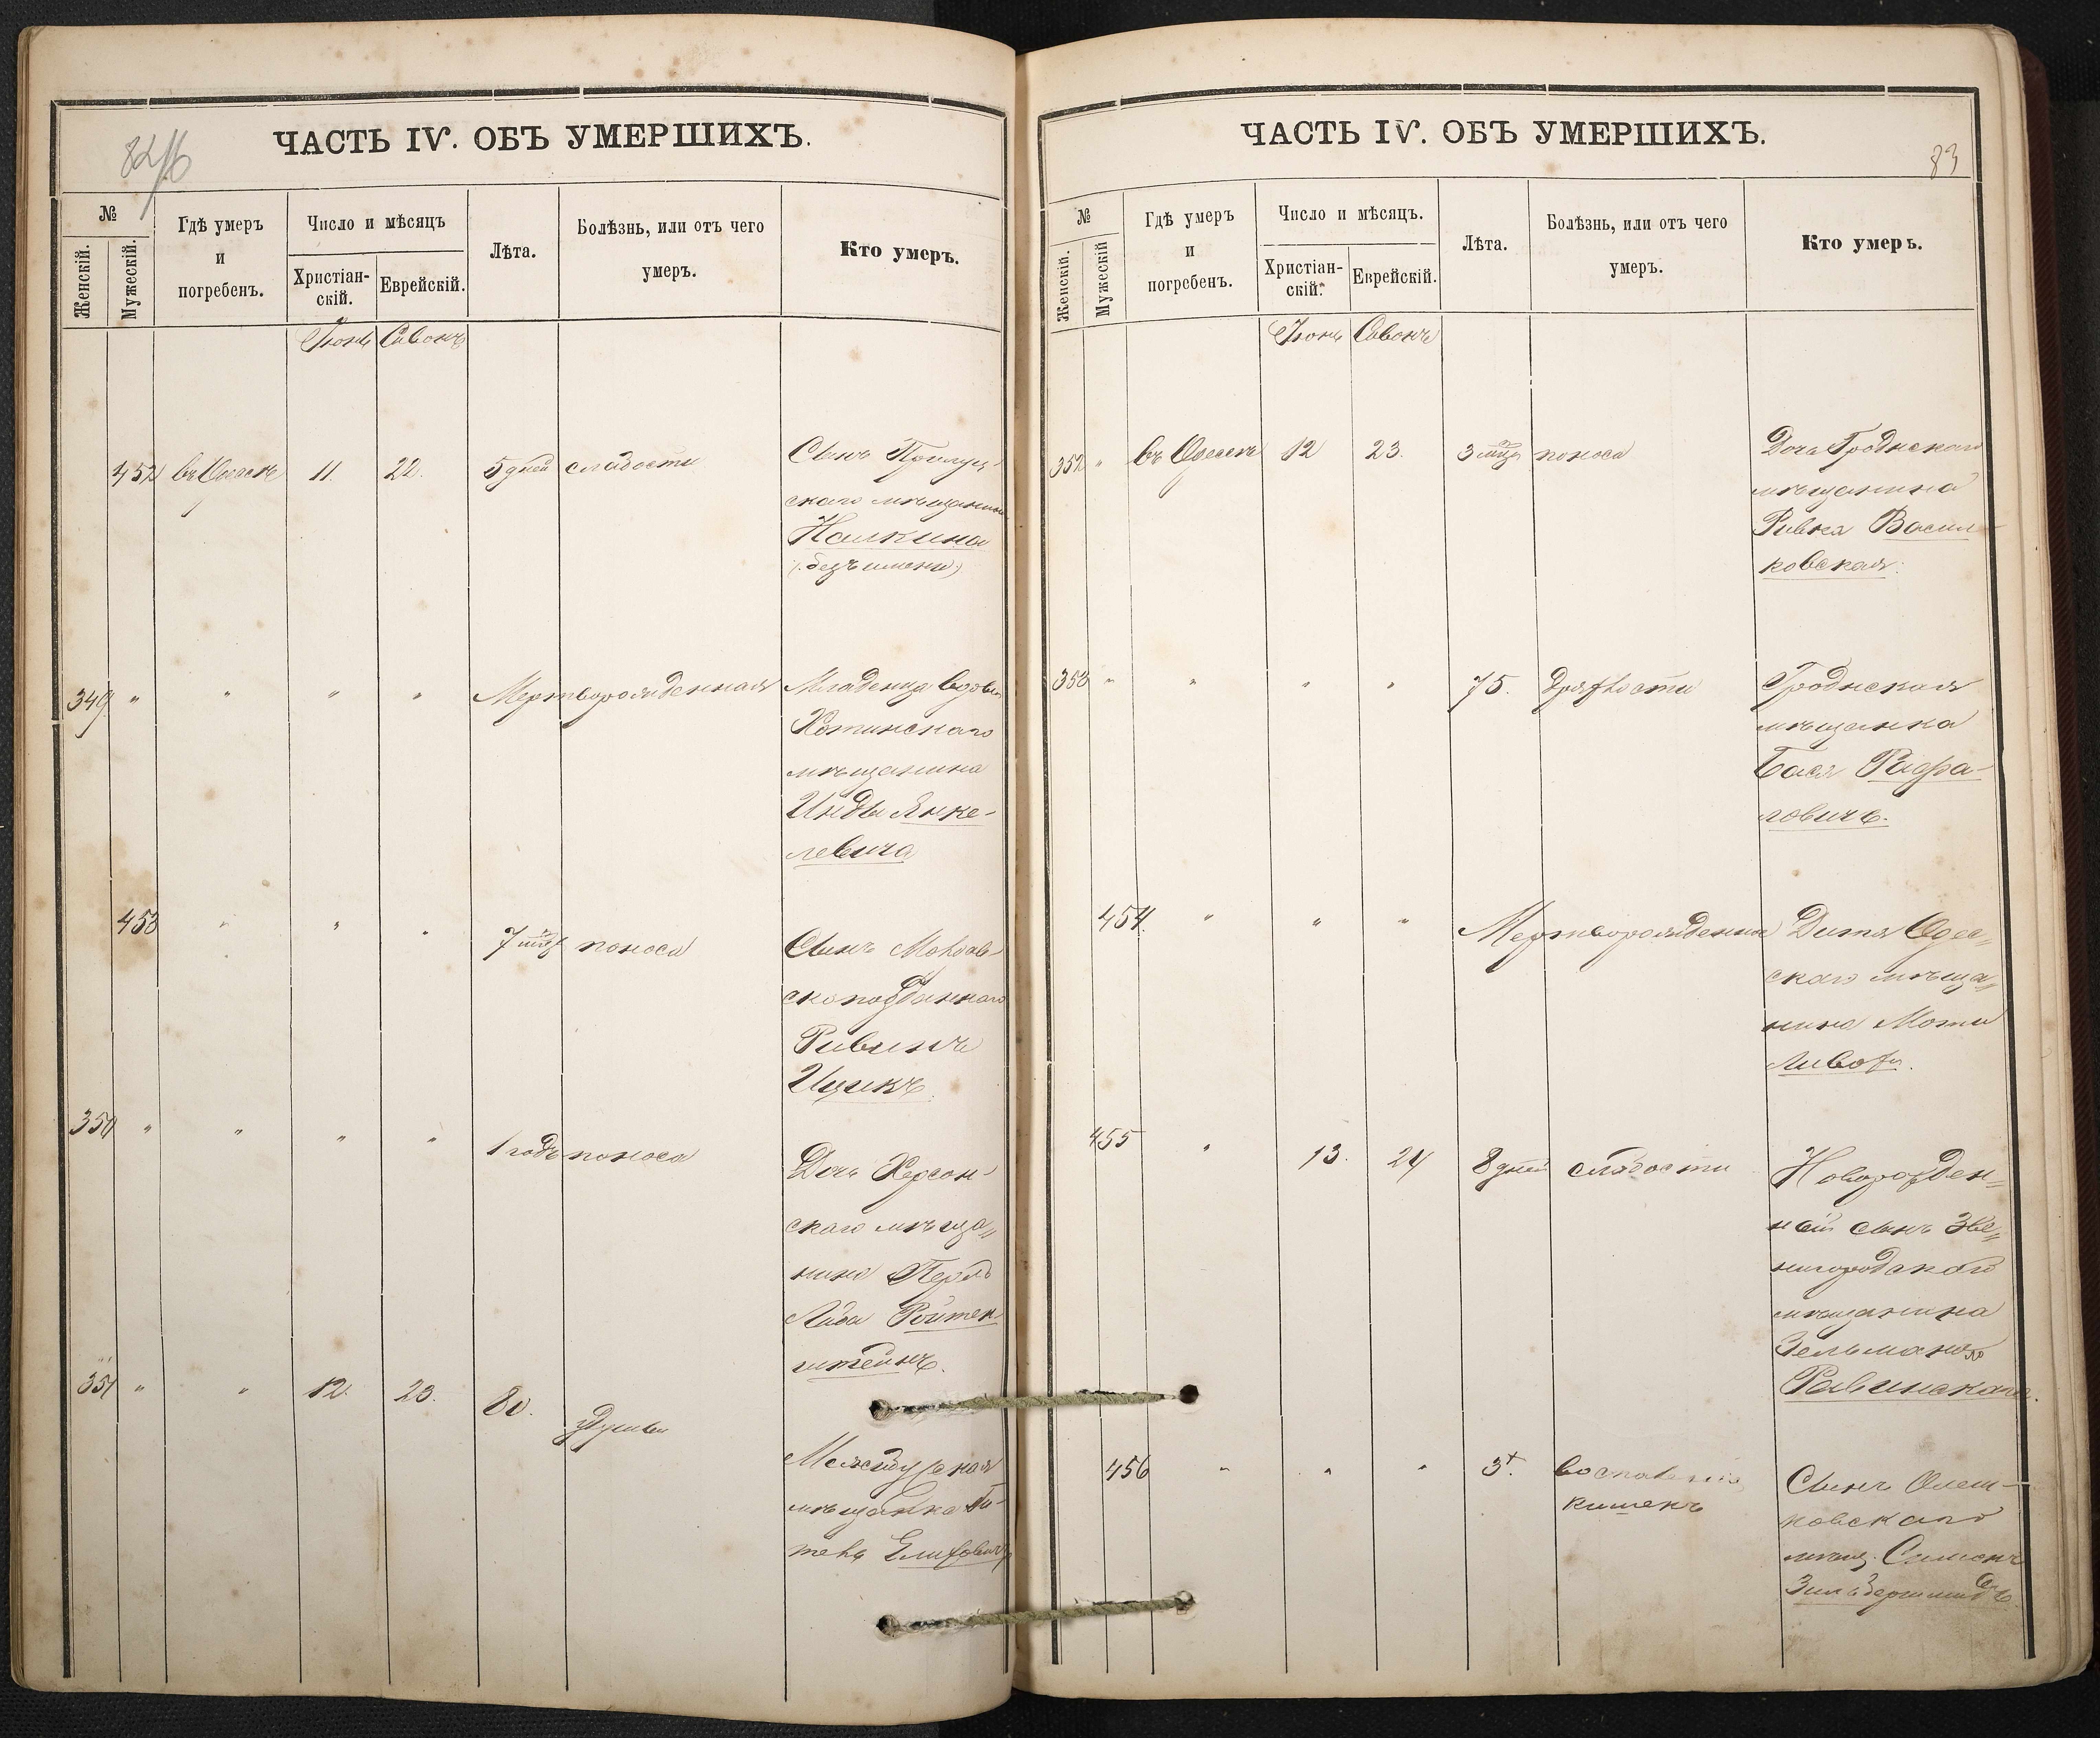 ЧАСТЬ IV. ОБЪ УМЕРШИХЪ.
№
Женскій.
Мужескій.
Гдѣ умеръ
и
погребенъ.
Число и мѣсяцъ
Христіан-
скій.
Еврейскій.
Лѣта.
Болѣзнь, или отъ чего
умеръ.
Кто умеръ.
Іюнь Сивонъ
452 въ Одессѣ 11. 22. 5 дней слабости Сынъ
скаго мѣщанина
(безъ имени)
349 " " " " Мертворожденная Младенца вдовы
Хотинскаго
мѣщанина
Инды Янке-
левича
453 " " " 7 мѣс поноса Сынъ Молдав-
скоподданнаго
Ривинъ
Ицикъ.
350 " " " " 1 годъ поноса Дочь Херсон-
скаго мѣща=
нина Перль
Роитен-
штейнъ.
351 " " 12. 23. 80.
мѣщанка
ЧАСТЬ IV. ОБЪ УМЕРШИХЪ.
83
№
Женскій.
Мужескій
Гдѣ умеръ
и
погребенъ.
Число и мѣсяцъ.
Христіан-
скій.
Еврейскій.
Лѣта.
Болѣзнь, или отъ чего
умеръ.
Кто умеръ.
Іюнь Сивонъ
352 " въ Одессѣ 12 23. 3 мѣс поноса Дочь Гродненскаго
мѣщанина
Ривка Васил-
ковская.
353 " " " " 75. дряхлости Гродненская
мѣщанка
Бася Рафа-
ловичъ.
454. " " " Мертворожденное Дитя Одес=
скаго мѣща=
нина Моти
455 " 13. 24 8 дней слабости Новорожден=
ный сынъ Зве=
нигородскаго
мѣщанина
Зельмана
Равинскаго.
456 " " " 3 воспаленія Сынъ Олеш-
ковскаго
кишекъ
мѣщ. Симонъ
Зильбершмидтъ.